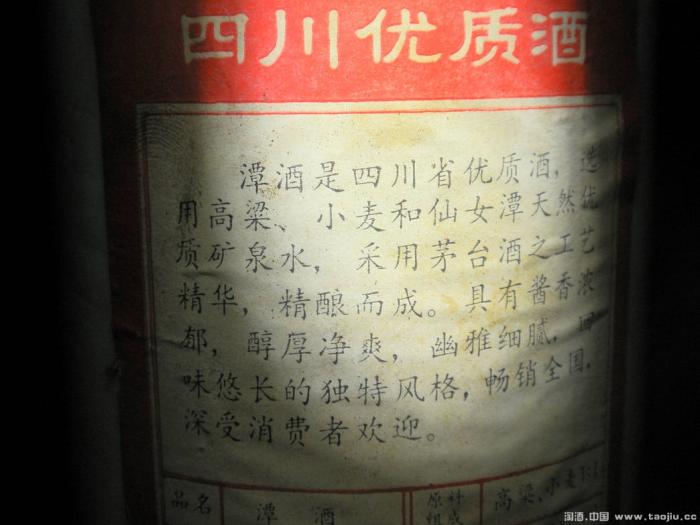 四川优质酒
潭酒是四川省优质酒，选
用高粱、小麦和仙女潭天然优
质矿泉水，采用茅台酒之工艺
精华，精酿而成。具有酱香浓
郁，醇厚净爽，幽雅细腻，回
味悠长的独特风格，畅销全国，
深受消费者欢迎。
品名 潭酒 原料 高粱、小麦
淘酒.中国 www.taojiu.cc